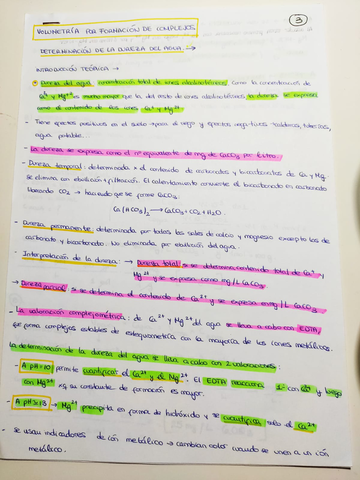 3
VOLUMETRÍA POR FORMACIÓN DE COMPLEJOS.
DETERMINACIÓN DE LA DUREZA DEL AGUA.
INTRODUCCIÓN TEÓRICA →
Dureza del agua: concentración total de iones alcalinotérreos. Como la concentración de
Ca²⁺ y Mg²⁺ es mucho mayor que la del resto de iones alcalinotérreos la dureza se expresa
como el contenido de los iones Ca²⁺ y Mg²⁺
- Tiene efectos positivos en el suelo para el riego y efectos negativos:
agua potable.
- La dureza se expresa como el nº equivalente de mg de CaCO₃ por litro.
- Dureza temporal: determinada x el contenido de carbonatos y bicarbonatos de Ca y Mg.
Se elimina con ebullición y filtración. El calentamiento convierte el bicarbonato en carbonato
liberando CO₂ → haciendo que se forme CaCO₃.
Ca(HCO₃)₂ → CaCO₃ + CO₂ + H₂O.
- Dureza permanente: determinada por todas las sales de calcio y magnesio excepto las de
carbonato y bicarbonato. No eliminada por ebullición del agua.
- Interpretación de la dureza: → Dureza total: si se determina contenido total de Ca²⁺ y
Mg²⁺ y se expresa como mg/L CaCO₃
→ Dureza parcial: si se determina el contenido de Ca²⁺ y se expresa en mg/L CaCO₃
- La valoración complejométrica: de Ca²⁺ y Mg²⁺ del agua se lleva a cabo con EDTA,
que forma complejos estables de estequiometría con la mayoría de los iones metálicos.
La determinación de la dureza del agua se lleva a cabo con 2 valoraciones:
- A pH=10 permite cuantificar el Ca²⁺ y el Mg²⁺. El EDTA reacciona 1º con Ca²⁺ y luego
con Mg²⁺ xq su constante de formación es mayor.
- A pH>13 → Mg²⁺ precipita en forma de hidróxido y se cuantifica solo el Ca²⁺
- Se usan indicadores de ión metálico → cambian color cuando se unen a un ión
metálico.